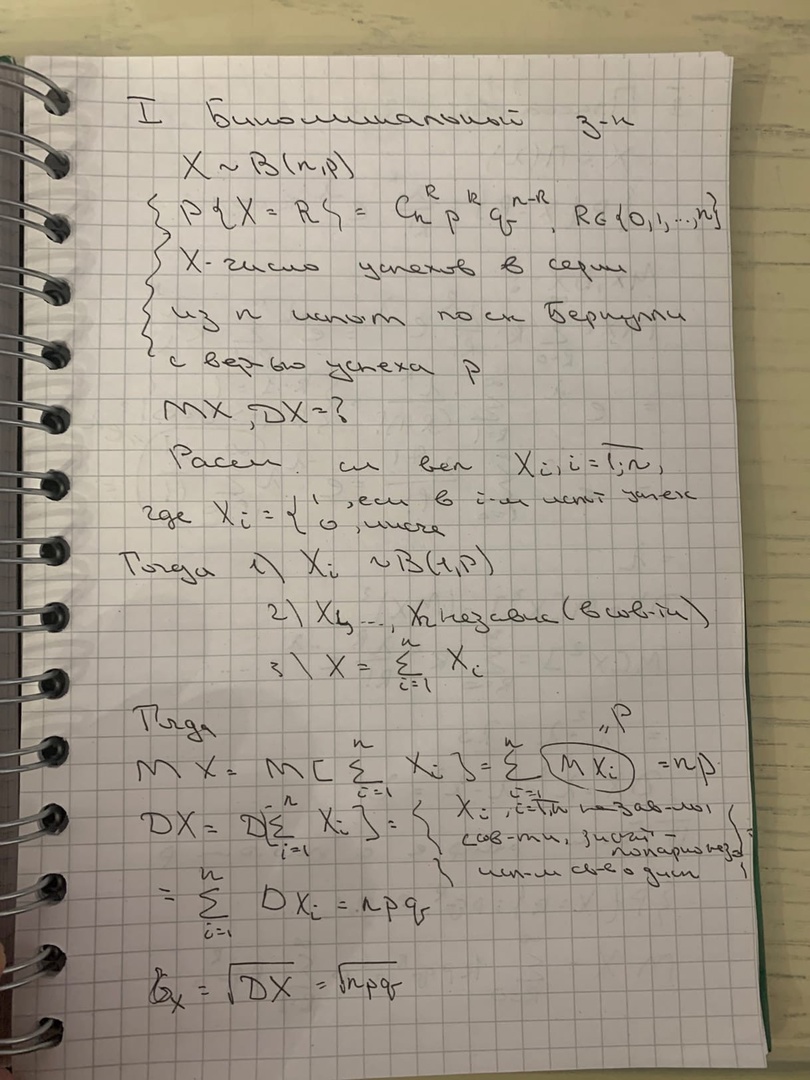 I Биномиальный з-н
X ~ B(n,p)
P{X = k} = Cₙᵏ pᵏ qⁿ⁻ᵏ, k∈{0,1,...,n}
X - число успехов в серии
из n испыт по сх Бернулли
с вер-ью успеха p
MX, DX = ?
Рассм. сл вел Xᵢ, i = 1,n,
где Xᵢ = { 1, если в i-м испыт успех
0, иначе
Тогда 1) Xᵢ ~ B(1,p)
2) X₁, ..., Xₙ независ (в сов-ти)
3) X = Σᵢ₌₁ⁿ Xᵢ
Тогда
"p
MX = M[Σᵢ₌₁ⁿ Xᵢ] = Σᵢ₌₁ⁿ MXᵢ = np
DX = D[Σᵢ₌₁ⁿ Xᵢ] = { Xᵢ, i=1,n незав-мы
сов-ти, значит -
попарно нез
исп-м св-о дисп } =
= Σᵢ₌₁ⁿ DXᵢ = npq
σₓ = √DX = √npq